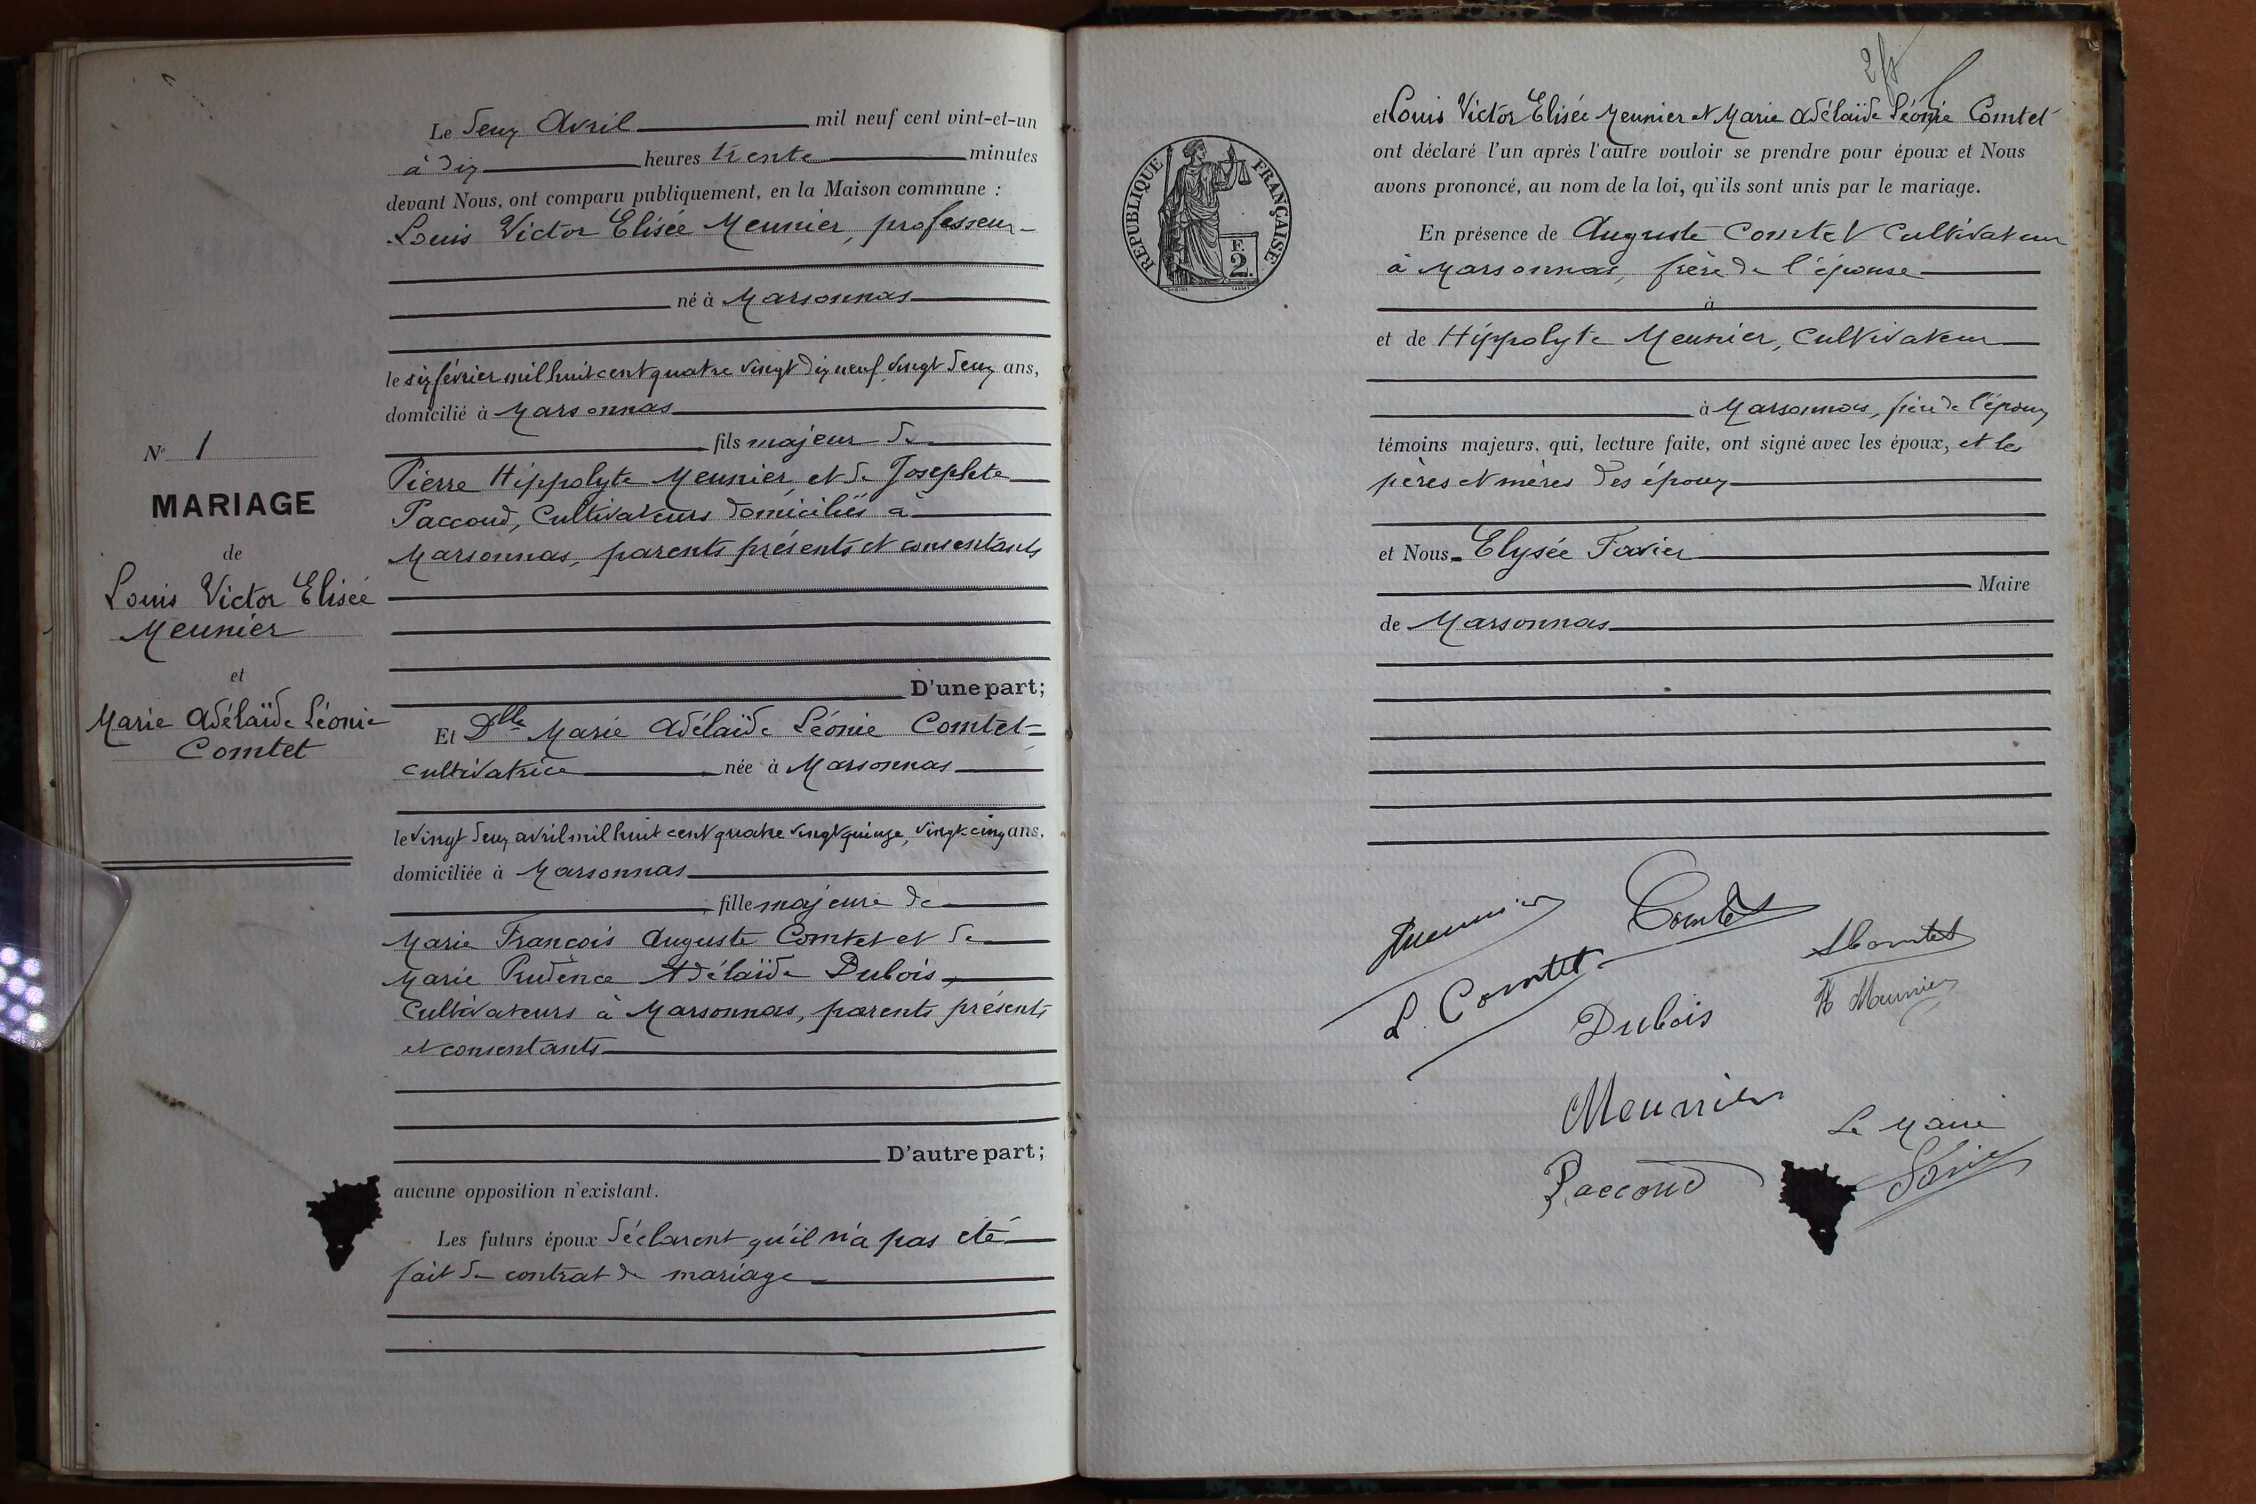 N° 1
MARIAGE
de
Louis Victor Elisée
Meunier
et
Marie Adélaïde Léonie
Comtet
Le deux Avril mil neuf cent vint-et-un
à dix heures trente minutes
devant Nous, ont comparu publiquement, en la Maison commune :
Louis Victor Elisée Meunier, professeur
né à Marsonnas
le six février mil huit cent quatre vingt dix neuf, vingt deux ans,
domicilié à Marsonnas
fils majeur de
Pierre Hippolyte Meunier, et de Josephte
Paccoud, Cultivateurs domiciliés à
Marsonnas, parents présents et consentants
D'une part;
Et Dlle Marie Adélaïde Léonie Comtet
cultivatrice née à Marsonnas
le vingt deux avril mil huit cent quatre vingt quinze, vingt-cinq ans,
domiciliée à Marsonnas
fille majeure de
Marie François Auguste Comtet et de
Marie Prudence Adélaïde Dubois,
Cultivateurs à Marsonnas, parents présents
et consentants
D'autre part;
aucune opposition n'existant.
Les futurs époux déclarent qu'il n'a pas été
fait de contrat de mariage
RÉPUBLIQUE FRANÇAISE
F.
2.
et Louis Victor Elisée Meunier et Marie Adélaïde Léonie Comtet
ont déclaré l'un après l'autre vouloir se prendre pour époux et Nous
avons prononcé, au nom de la loi, qu'ils sont unis par le mariage.
En présence de Auguste Comtet Cultivateur
à Marsonnas, frère de l'épouse
à
et de Hippolyte Meunier, Cultivateur
à Marsonnas, frère de l'époux
témoins majeurs, qui, lecture faite, ont signé avec les époux, et les
pères et mères des époux
et Nous Elysée Favier
Maire
de Marsonnas
Meunier
Comtet
A Comtet
L. Comtet
H Meunier
Dubois
Meunier
Le Maire
Paccoud
Favier